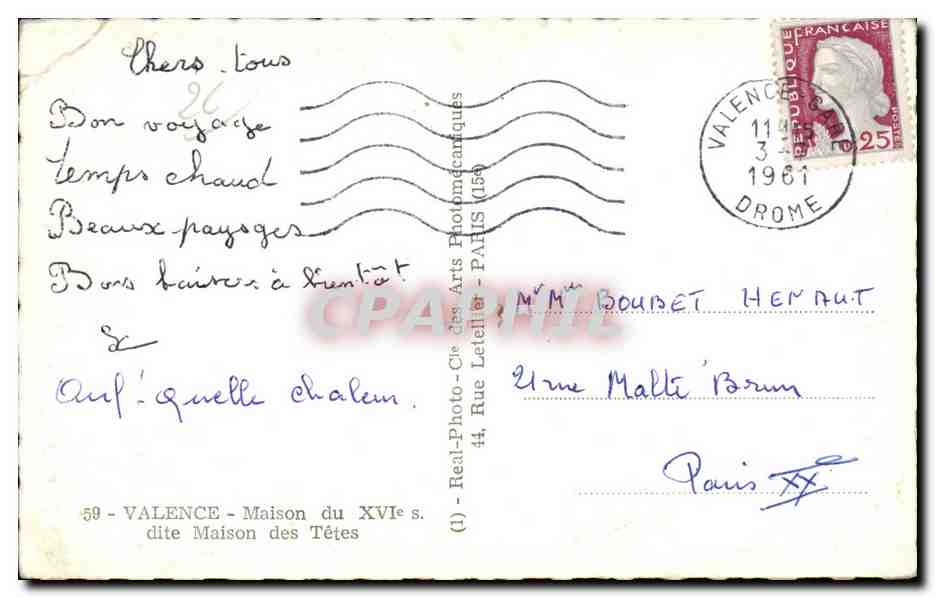 Chers tous
26
Bon voyage
temps chaud
Beaux paysages
Bons baisers à bientôt
Ouf! quelle chaleur.
59 - VALENCE - Maison du XVIe s.
dite Maison des Têtes
(1) - Real-Photo - Cie des Arts Photomécaniques
44, Rue Letellier - PARIS (15e)
REPUBLIQUE FRANCAISE
POSTES
25
VALENCE-GARE
11H
3 -
1961
DROME
CPAPHIL
Mr Mme BOUBET HENAUT
21 rue Malte Brun
Paris XXe